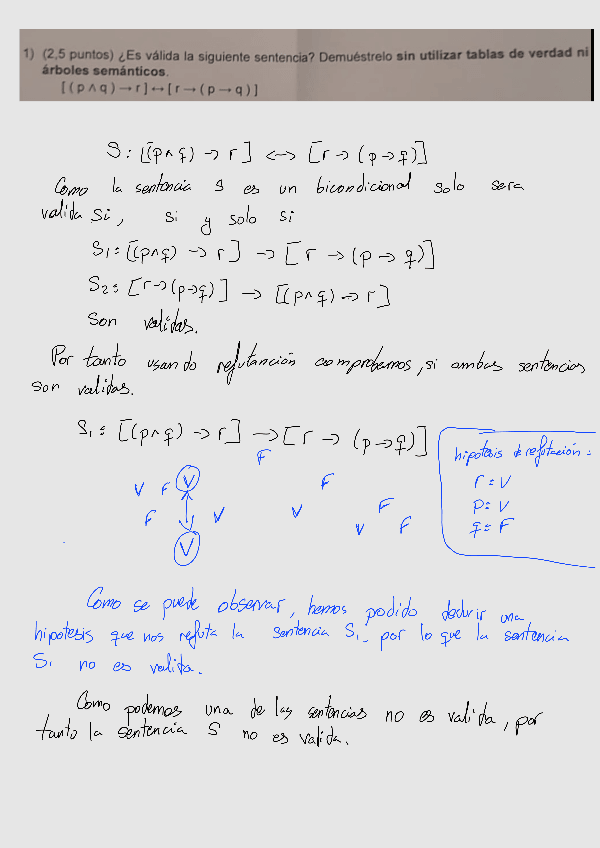 1) (2,5 puntos) ¿Es válida la siguiente sentencia? Demuéstrelo sin utilizar tablas de verdad ni
árboles semánticos.
[ ( p ∧ q ) → r ] ↔ [ r → ( p → q ) ]
S: [(p∧q) → r ] <-> [ r → (p→q)]
Como la sentencia S es un bicondicional solo sera
valida si, si y solo si
S1: [(p∧q) → r ] → [ r → (p → q)]
S2: [r→(p→q)] → [(p∧q) → r]
Son validas.
Por tanto usando refutanción comprobemos, si ambas sentencias
son validas.
S1: [(p∧q) → r] → [ r → (p→q)]
F
hipotesis de refutación:
V F V F r = V
F V V F p = V
V V F q = F
Como se puede observar, hemos podido deducir una
hipotesis que nos refuta la sentencia S1, por lo que la sentencia
S1 no es valida.
Como podemos una de las sentencias no es valida, por
tanto la sentencia S no es valida.